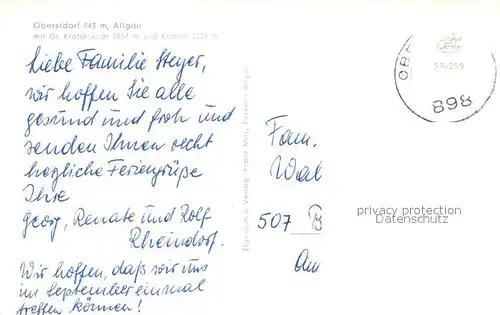 Oberstdorf 843 m, Allgäu
mit Gr. Krottenkopf 2657 m und Kratzer 2224 m
Liebe Familie Steyer,
wir hoffen Sie alle
gesund und froh und
senden Ihnen recht
herzliche Feriengrüße
Ihre
Georg, Renate und Rolf
Rheindorf.
Wir hoffen, daß wir uns
im September einmal
treffen können!
Eigentum u. Verlag, Franz Milz, Füssen-Allgäu
OB
59/259
898
Fam.
Wal
507 B
Am
privacy protection
Datenschutz